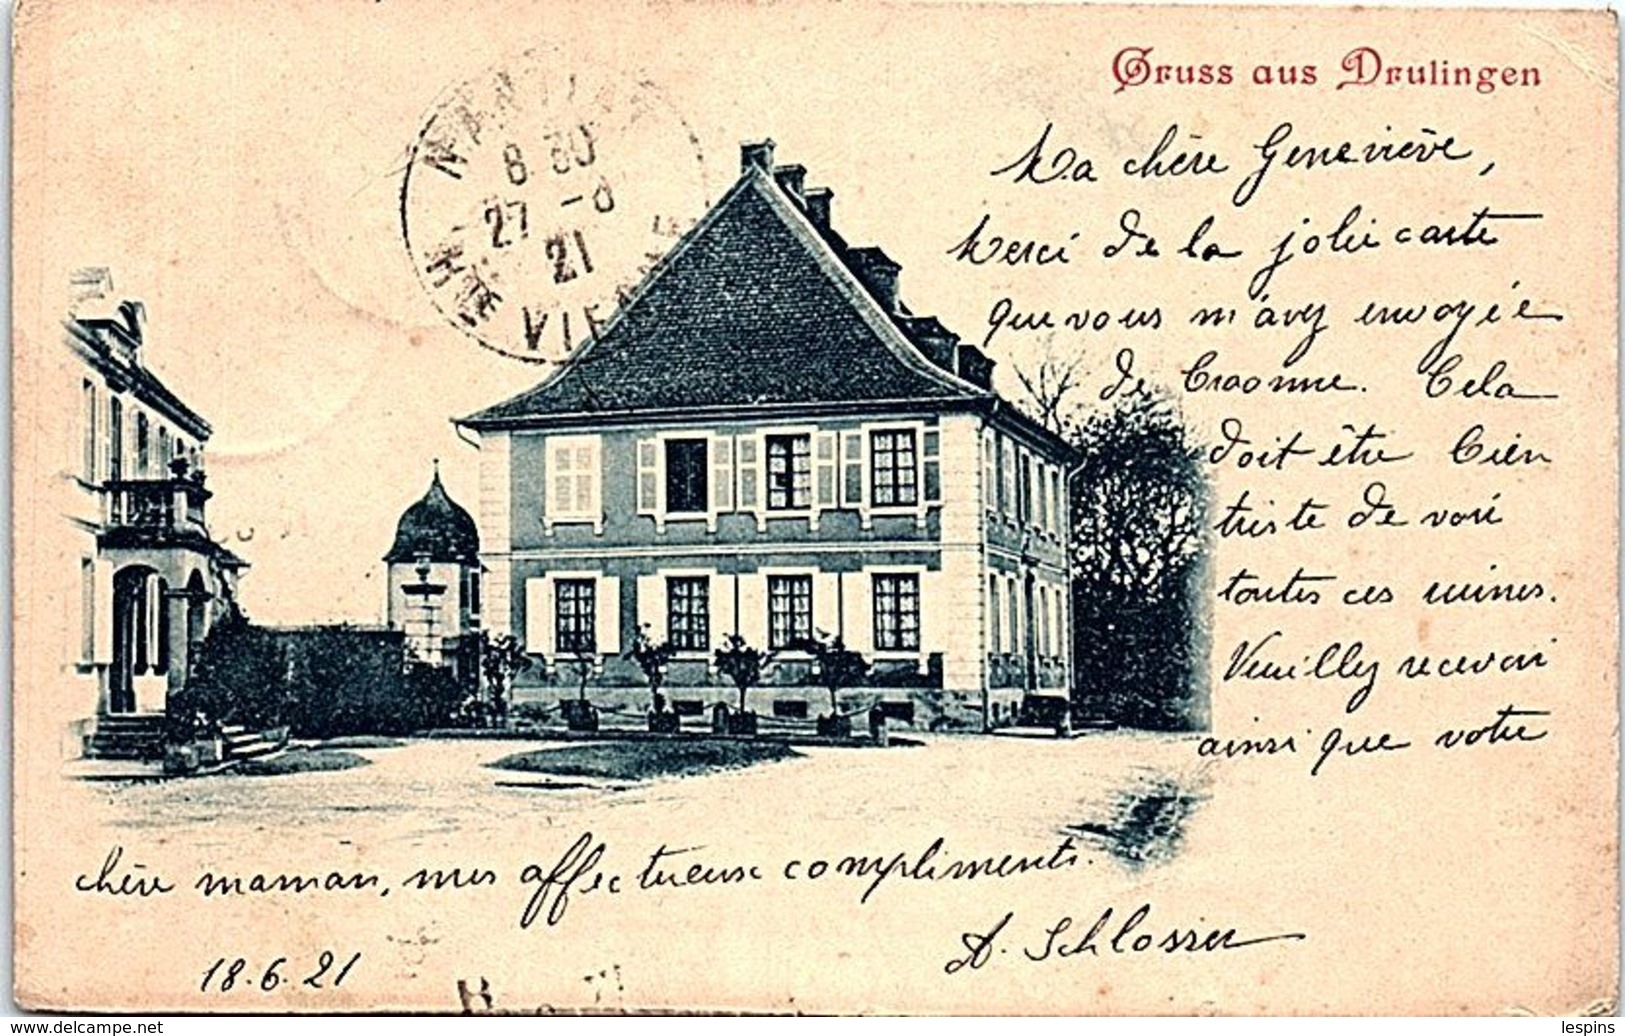 Gruss aus Drulingen
Ma chère Geneviève,
Merci de la jolie carte
que vous m'avez envoyée
de Craonne. Cela
doit être bien
triste de voir
toutes ces ruines.
Veuillez recevoir
ainsi que votre
chère maman, mes affectueux compliments.
A. Schlosser
18.6.21
8 30
27 -6
21
HTE VIENNE
lespins